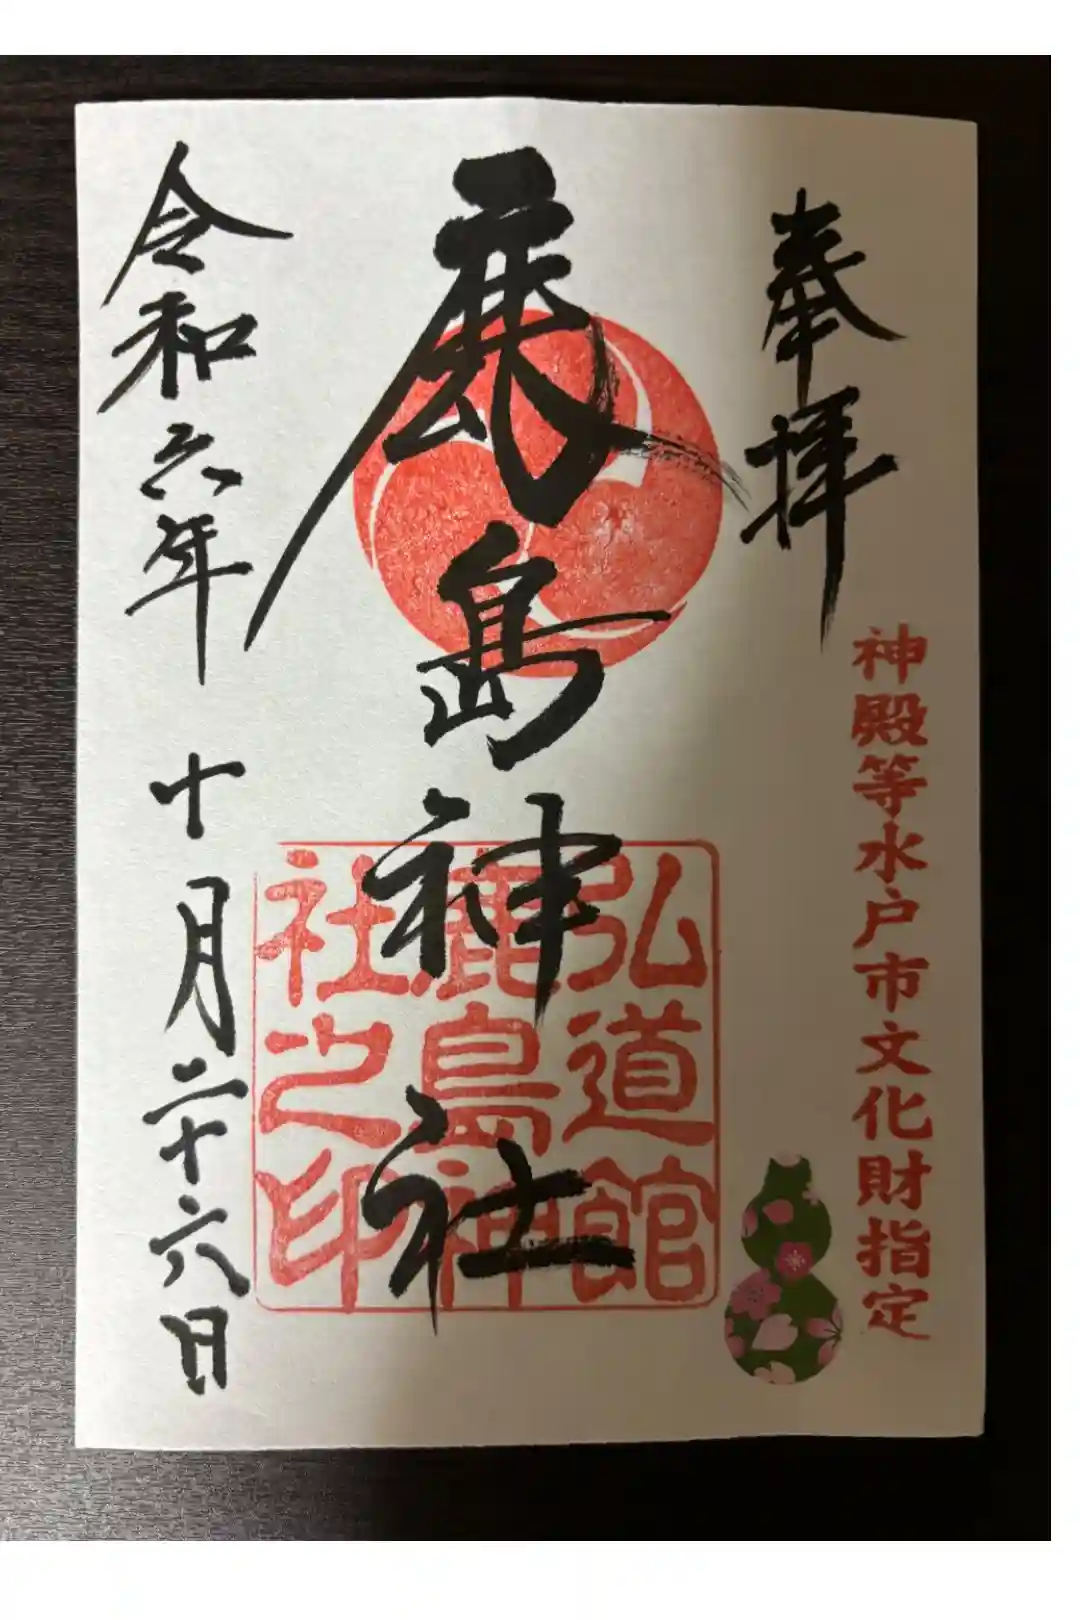 奉拝
神殿等水戸市文化財指定
鹿島神社
弘道館
鹿島神
社之印
令和六年十月二十六日